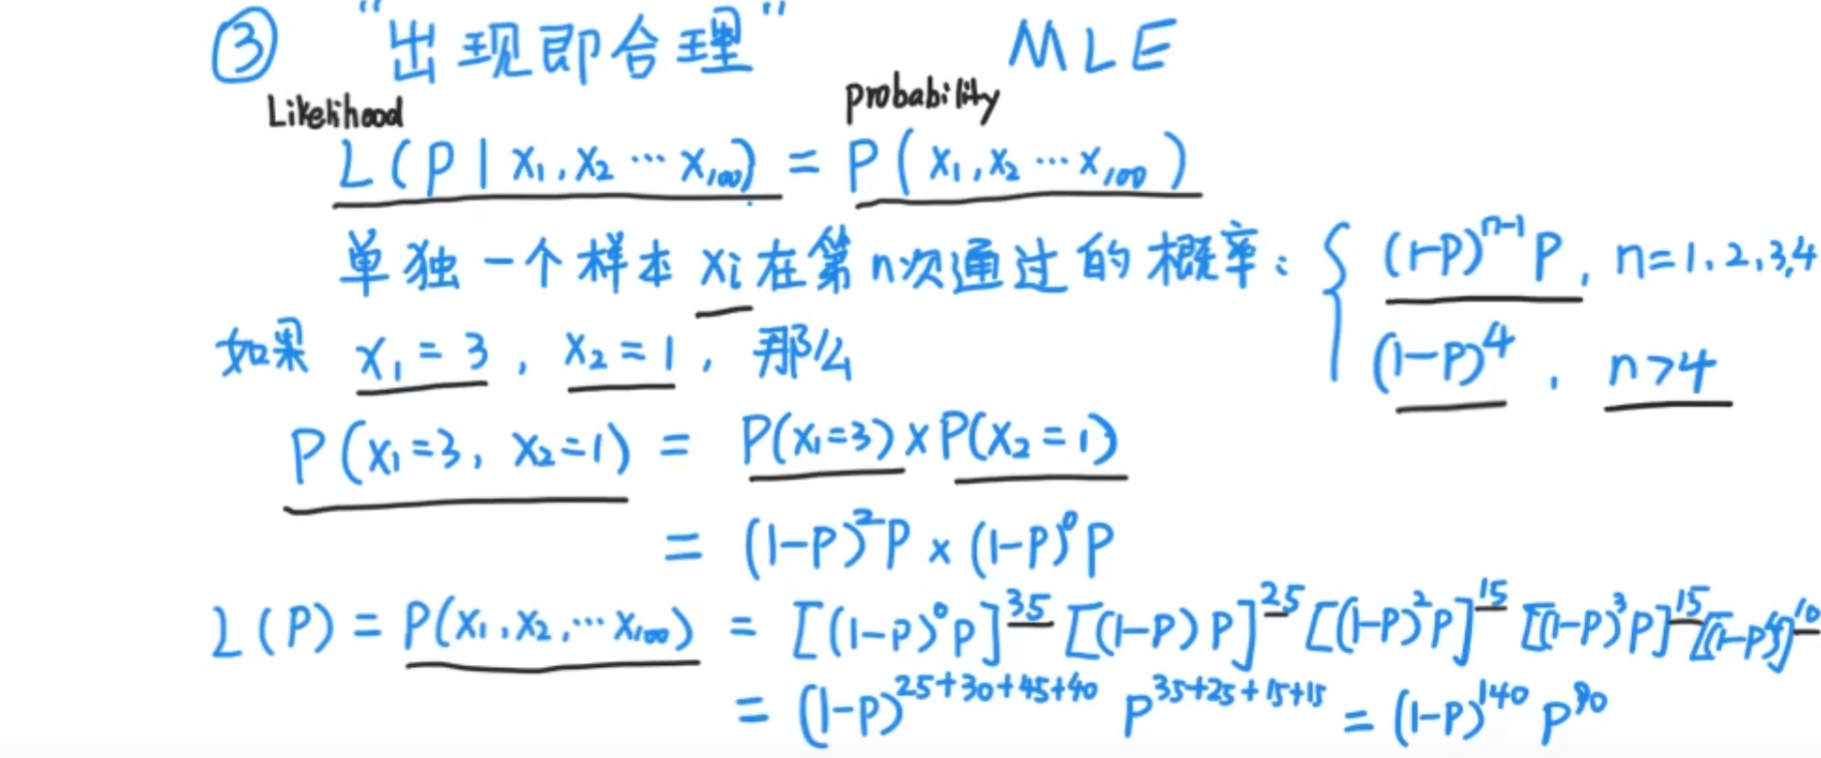 ③ “出现即合理” MLE
Likelihood probability
L(P|x₁,x₂…x₁₀₀) = P(x₁,x₂…x₁₀₀)
单独一个样本 xi 在第n次通过的概率: { (1-P)ⁿ⁻¹P, n=1.2.3,4
(1-P)⁴, n>4
如果 x₁=3, x₂=1, 那么
P(x₁=3, x₂=1) = P(x₁=3)×P(x₂=1)
= (1-P)²P × (1-P)⁰P
L(P) = P(x₁,x₂,…x₁₀₀) = [(1-P)⁰P]³⁵[(1-P)P]²⁵[(1-P)²P]¹⁵[(1-P)³P]¹⁵[(1-P)⁴]¹⁰
= (1-P)²⁵⁺³⁰⁺⁴⁵⁺⁴⁰ P³⁵⁺²⁵⁺¹⁵⁺¹⁵ = (1-P)¹⁴⁰ P⁹⁰